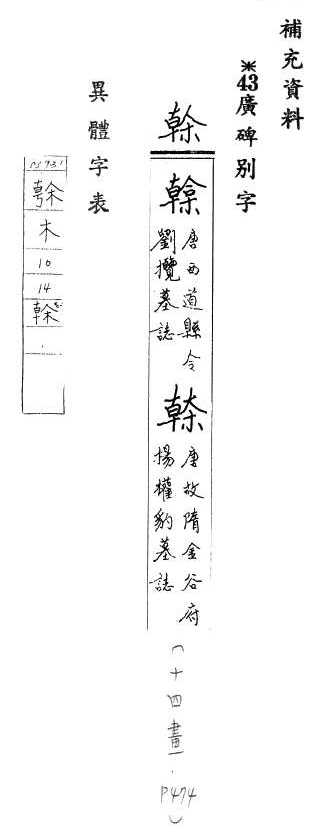 補充資料
※43廣碑別字
榦
唐西道縣令
劉攬墓誌
唐故隋金谷府
楊權豹墓誌
(十四畫.P474)
異體字表
木
10
14
榦